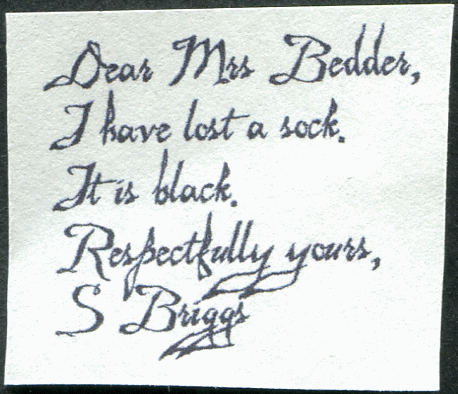 Dear Mrs Bedder,
I have lost a sock.
It is black.
Respectfully yours,
S Briggs